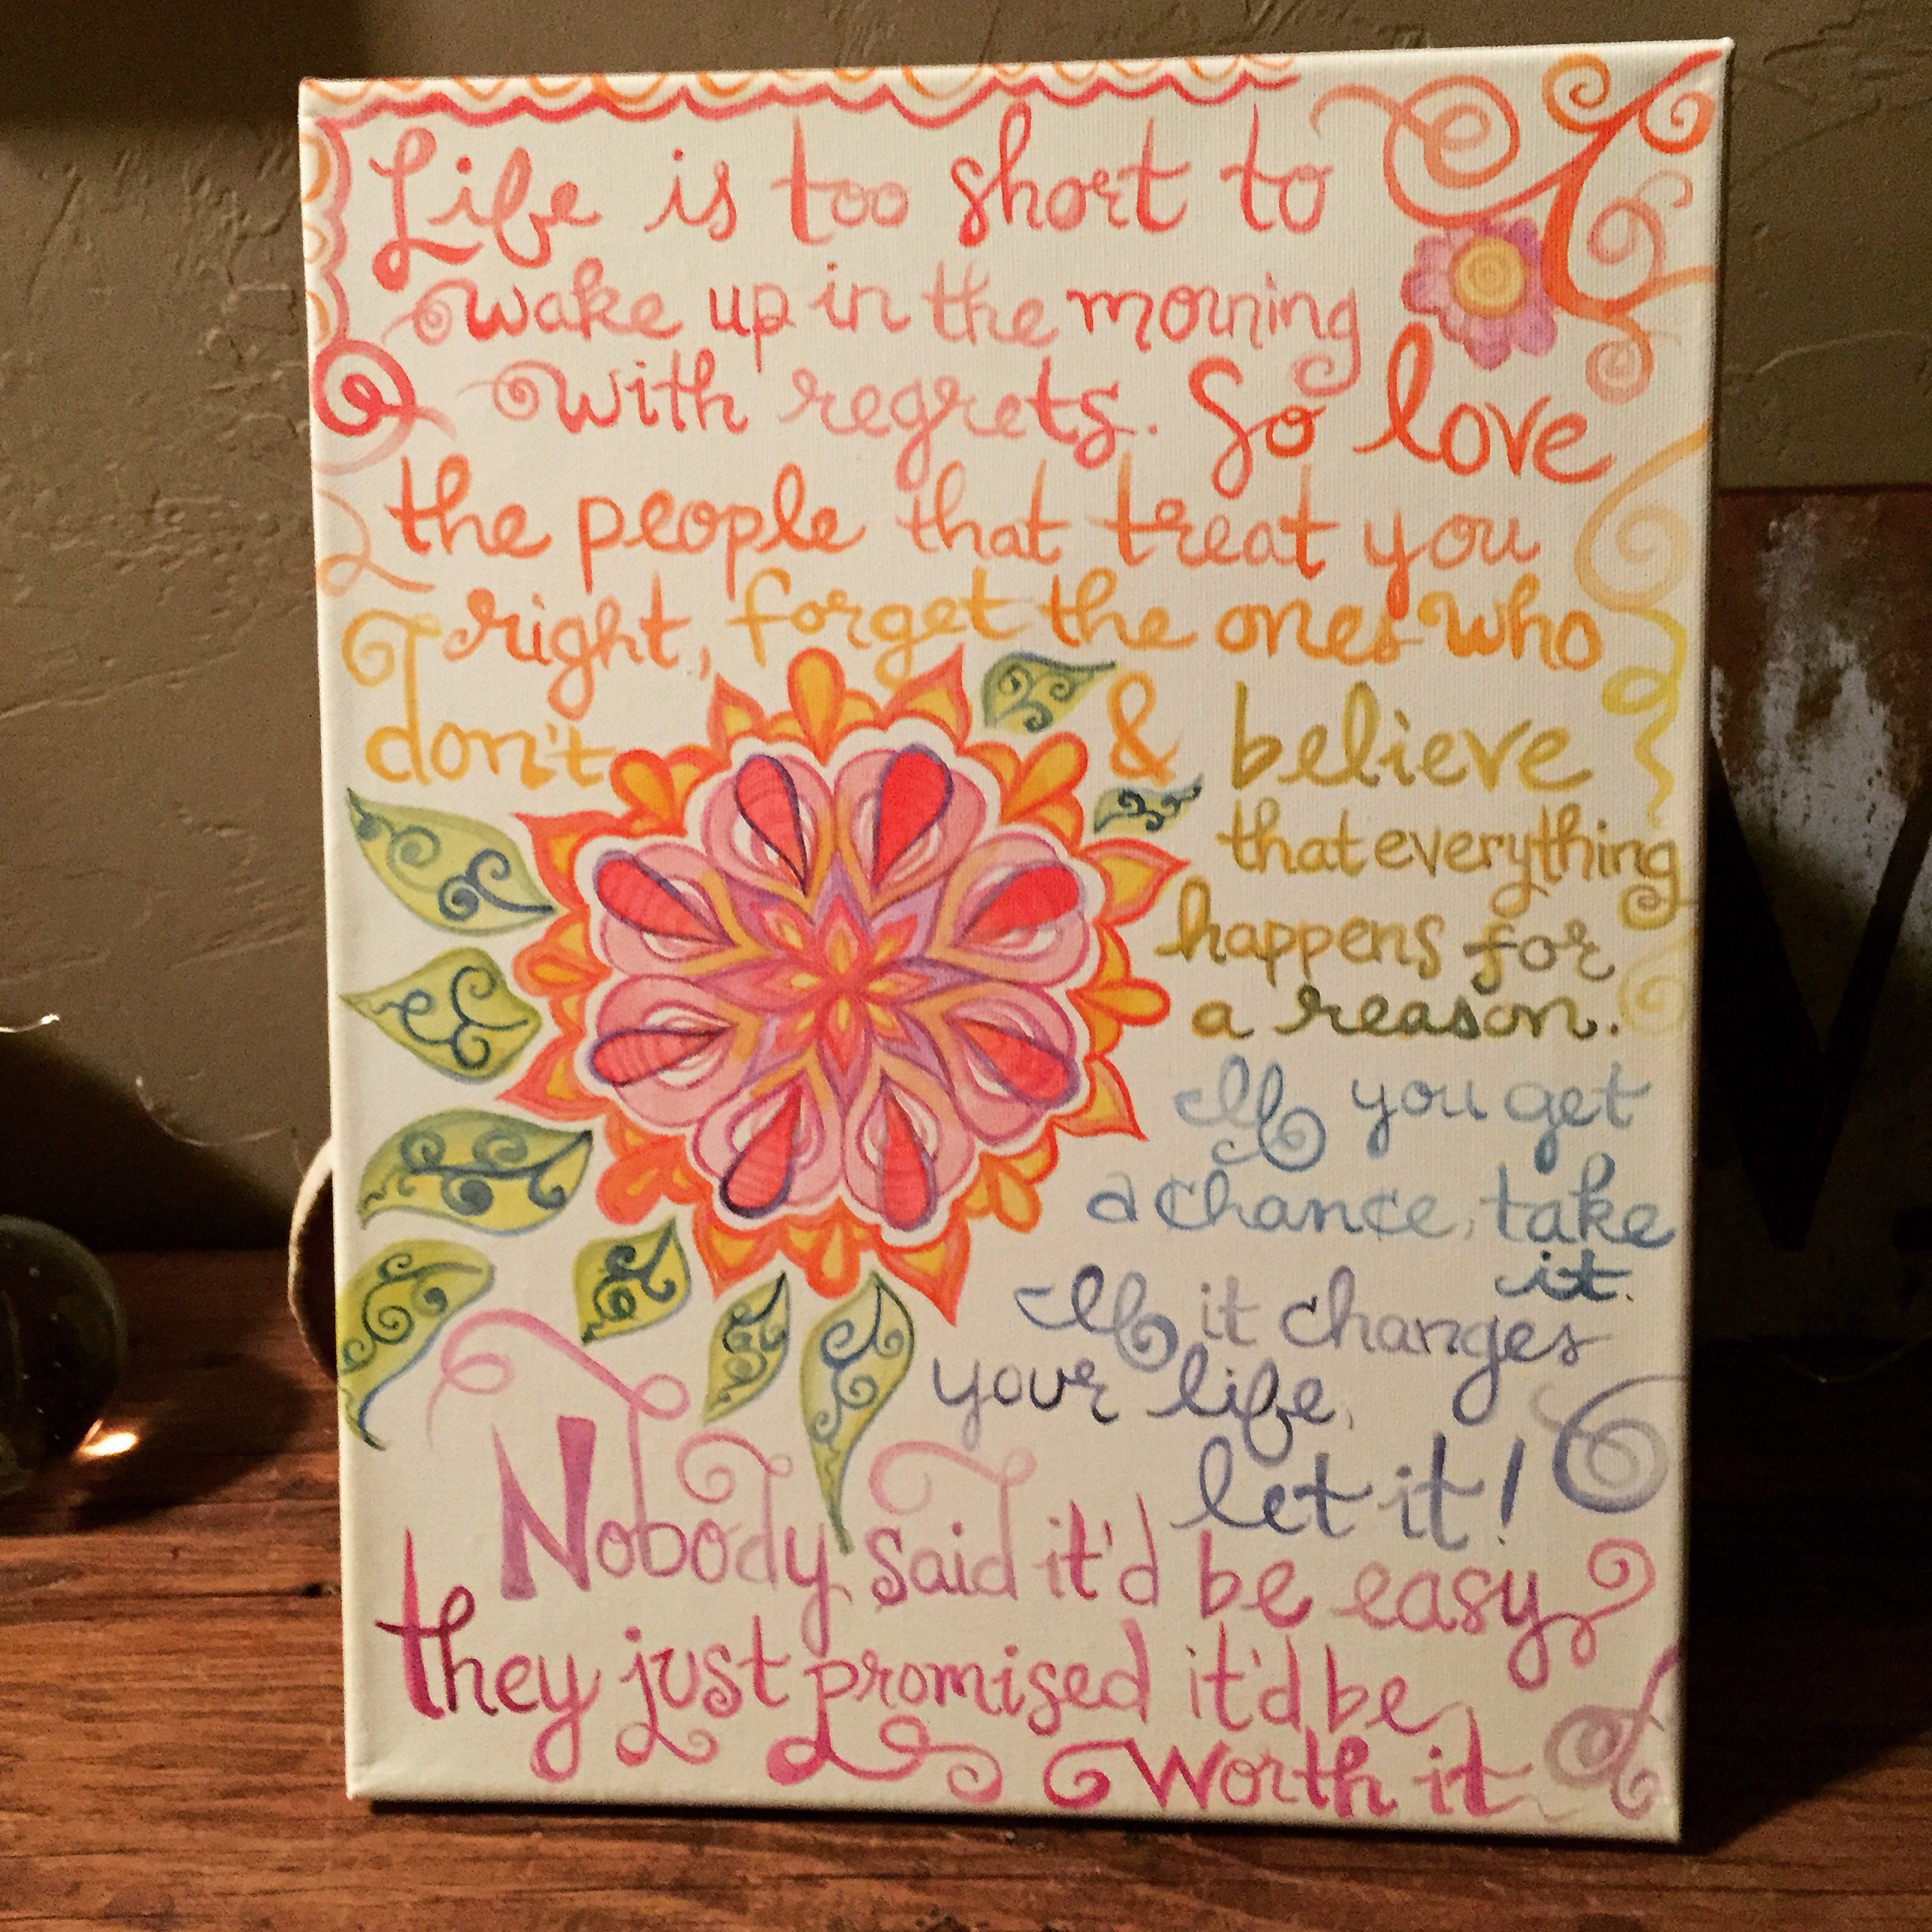 Life is too short to
wake up in the morning
with regrets. So love
the people that treat you
right, forget the ones who
don't & believe
that everything
happens for
a reason.
If you get
a chance, take
it.
If it changes
your life,
let it!
Nobody said it'd be easy
they just promised it'd be
worth it